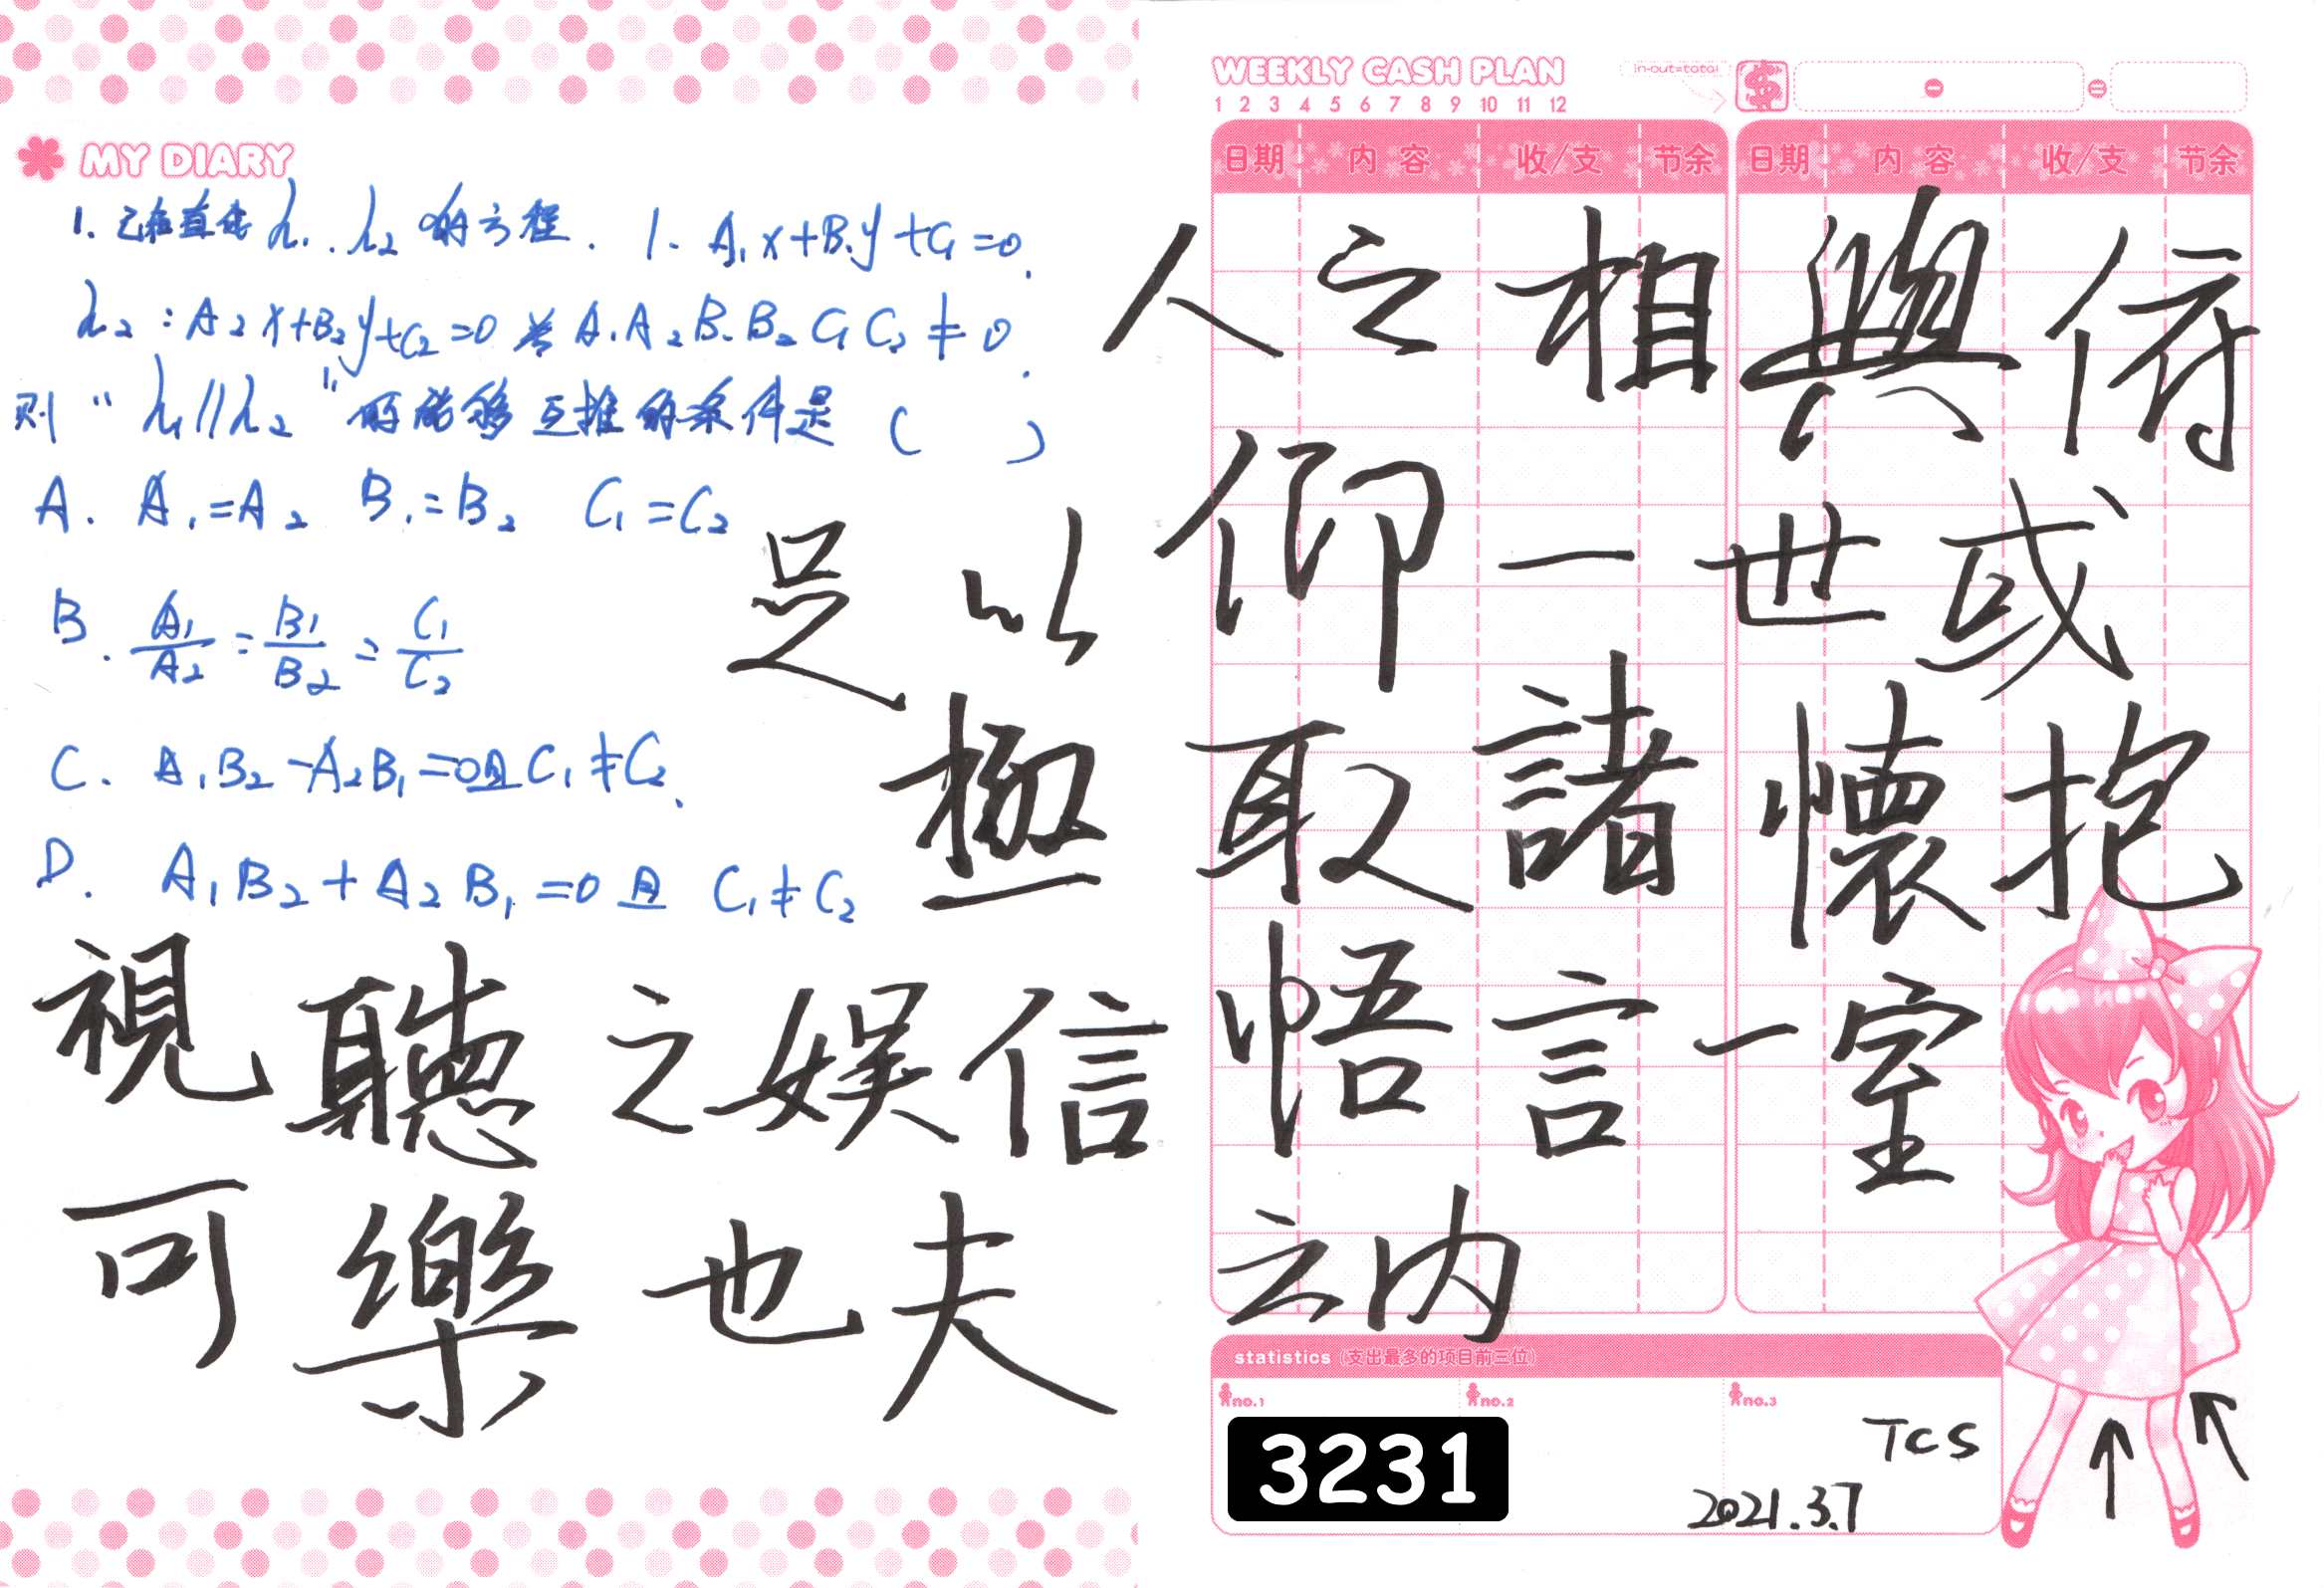 MY DIARY
1. 已知直线 l₁. l₂ 的方程. l. A₁x+B₁y+C₁=0.
l₂:A₂x+B₂y+C₂=0 若 A₁A₂B₁B₂C₁C₂≠0.
则"l₁//l₂" 所能够互推的条件是 ( )
A. A₁=A₂ B₁=B₂ C₁=C₂
B. A₁/A₂=B₁/B₂=C₁/C₂
C. A₁B₂-A₂B₁=0且C₁≠C₂.
D. A₁B₂+A₂B₁=0且 C₁≠C₂
足以
極
視聽之娛信
可樂也夫
WEEKLY CASH PLAN
1 2 3 4 5 6 7 8 9 10 11 12
in-out=total $ - =
日期 内容 收/支 节余 日期 内容 收/支 节余
人之相與俯
仰一世或
取諸懷抱
悟言一室
之内
statistics (支出最多的项目前三位)
no.1 no.2 no.3
3231
TCS
2021.3.7